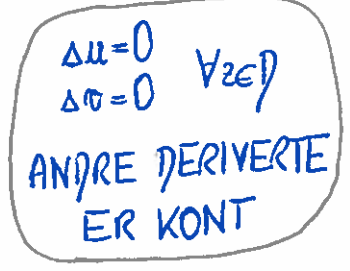 Δu=0
Δv=0 ∀z∈D
ANDRE DERIVERTE
ER KONT